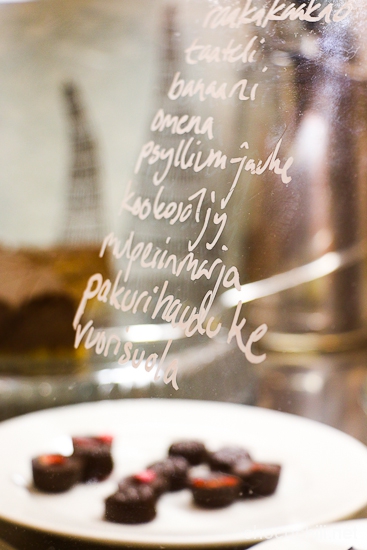 raakakaakao
taateli
banaani
omena
psyllium-jauhe
kookosöljy
mulperinmarja
pakurihauduke
vuorisuola